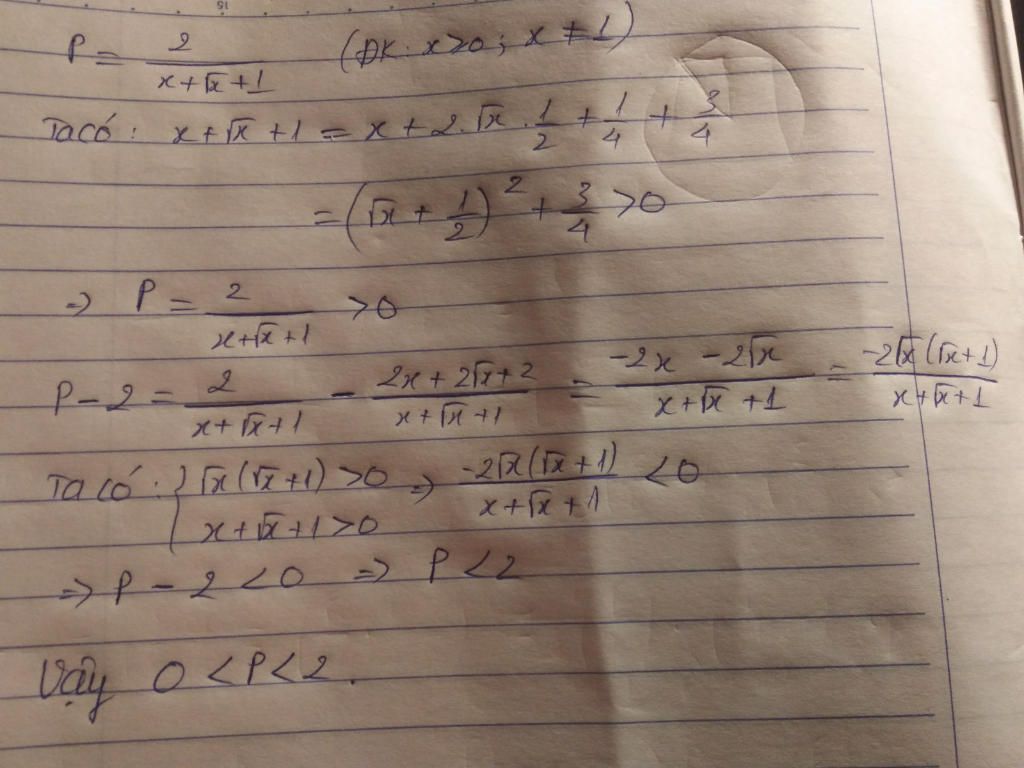 P = 2/(x+√x+1) (ĐK: x>0; x ≠ 1)
Ta có: x+√x+1 = x + 2.√x.1/2 + 1/4 + 3/4
= (√x + 1/2)² + 3/4 >0
⇒ P = 2/(x+√x+1) >0
P - 2 = 2/(x+√x+1) - (2x+2√x+2)/(x+√x+1) = (-2x -2√x)/(x+√x+1) = -2√x(√x+1)/(x+√x+1)
Ta có: { √x(√x+1) >0 ⇒ -2√x(√x+1)/(x+√x+1) <0
x+√x+1>0
⇒ P - 2 <0 ⇒ P<2
Vậy 0 <P<2.